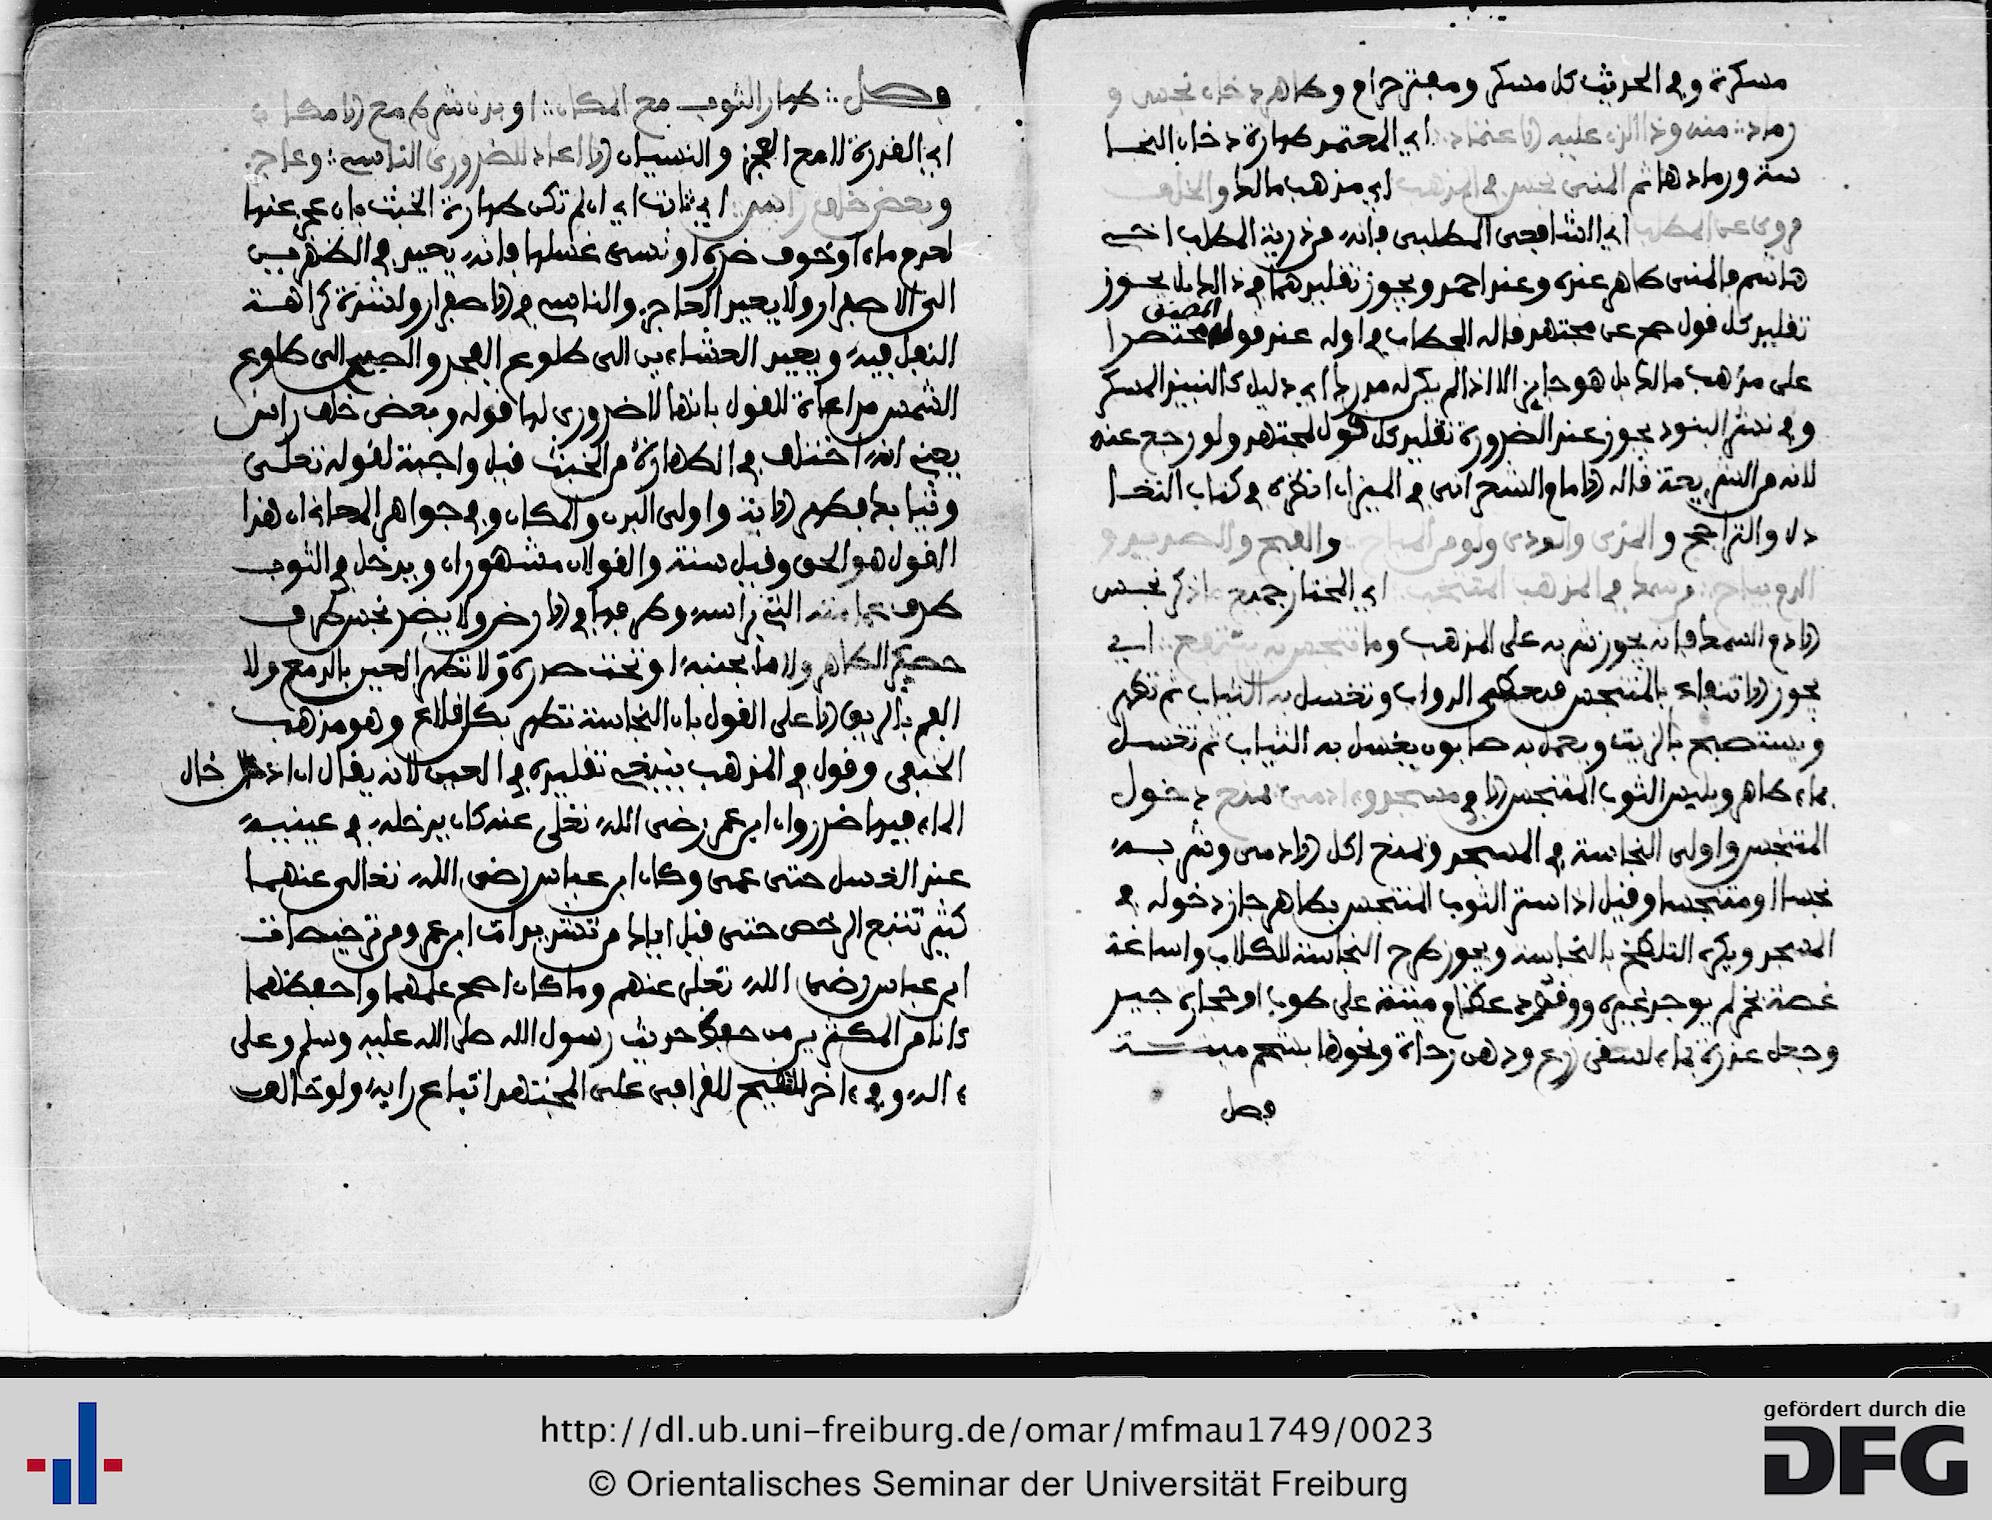 مسكرة وفي الحديث كل مسكر ومفتر حرام وطاهر دخان نجس و
رماد منه وذا الذي عليه الاعتماد اي المعتمد طهارة دخان النجا
سة ورمادها ثم المني نجس في المذهب اي مذهب مالك والخلف
مروي عن المطلب اي الشافعي المطلبي فانه من ذرية المطلب اخي
هاشم فالمني طاهر عنده وعند احمد ويجوز تقليدهما في ذالك بل يجوز
تقليد كل قول صح عن مجتهد قاله الحطاب في اوله عند قول المصنف مختصرا
على مذهب مالك بل هو جايز الا اذا لم يكن له مدرك اي دليل كالنبيذ المسكر
وفي نشر البنود يجوز عند الضرورة تقليد كل قول لمجتهد ولو رجع عنه
لانه من الشريعة قاله الامام الشعراني في الميزان انظره في كتاب التعا
دل والتراجح والمذي والودي ولو من المباح والقيح والصديد و
الدم يباح في المذهب المنتخب اي المختار جميع ما ذكر نجس
الا دم السمك فانه يجوز شربه على المذهب وما تنجس به ينتفع اي
يجوز الانتفاع بالمتنجس فيسقى الدواب وتغسل به الثياب ثم تطهر
ويستصبح بالزيت ويعمل به صابون يغسل به الثياب ثم تغسل
بماء طاهر ويلبس الثوب المتنجس الا في مسجد وءادمي فمنع دخول
المتنجس واولى النجاسة في المسجد ومنع اكل الادمي وشربه
نجسا او متنجسا وقيل اذا ستر الثوب المتنجس بطاهر جاز دخوله في
المسجد ويكره التلطخ بالنجاسة ويجوز طرح النجاسة للكلاب واساغة
غصة بخمر لم يوجد غيره ووقود عظام ميتة على طوب او حجارة جير
وجعل عذرة بماء لسقي زرع ودهن رحاة ونحوها بشحم ميتة
فصل
فصل طهر الثوب مع المكان او بدن شرط مع الامكان
اي القدرة لا مع العجز والنسيان الا اعاد للضروري الناسي وعاجز
وبعض خلف راسي اي ثابت اي ان لم تكن طهارة الخبث بان عجز عنها
لعدم ماء او خوف ضرر او نسي غسلها فانه يعيد في الظهرين
الى الاصفرار ولا يعيد العاجز والناسي في الاصفرار لشدة كراهة
النفل فيه ويعيد العشاءين الى طلوع الفجر والصبح الى طلوع
الشمس مراعاة للقول بانها لا ضروري لها قوله وبعض خلف راس
يعني انه اختلف في الطهارة من الخبث فقيل واجبة لقوله تعلى
وثيابك فطهر الاية واولى البدن والمكان وفي جواهر المعاني ان هذا
القول هو الحق وقيل سنة والقولان مشهوران ويدخل في الثوب
طرف عمامته التي براسه وطرفها في الارض ولا يضر نجس طرف
حصير الطاهر ولا ما بجنبه او تحت صدره ولا تطهر العين بالدمع ولا
الفم بالريق الا على القول بان النجاسة تطهر بكل قلاع وهو مذهب
الحنفي وقول في المذهب ينبغي تقليده في العين لانه يقال ان ادخال
الماء فيها ضرر وان ابن عمر رضي الله تعلى عنه كان يدخله في عينيه
عند الغسل حتى عمي وكان ابن عباس رضي الله تعالى عنهما
كثير تتبع الرخص حتى قيل اياك من تشديدات ابن عمر ومن ترخيصات
ابن عباس رضي الله تعلى عنهم وما كان اصح علمهما واحفظهما
كانا من المكثرين من حفظ حديث رسول الله صلى الله عليه وسلم وعلى
ءاله وفي ءاخر التنقيح للقرافي على المجتهد اتباع رايه ولو خالف
http://dl.ub.uni-freiburg.de/omar/mfmau1749/0023
© Orientalisches Seminar der Universität Freiburg
gefördert durch die
DFG